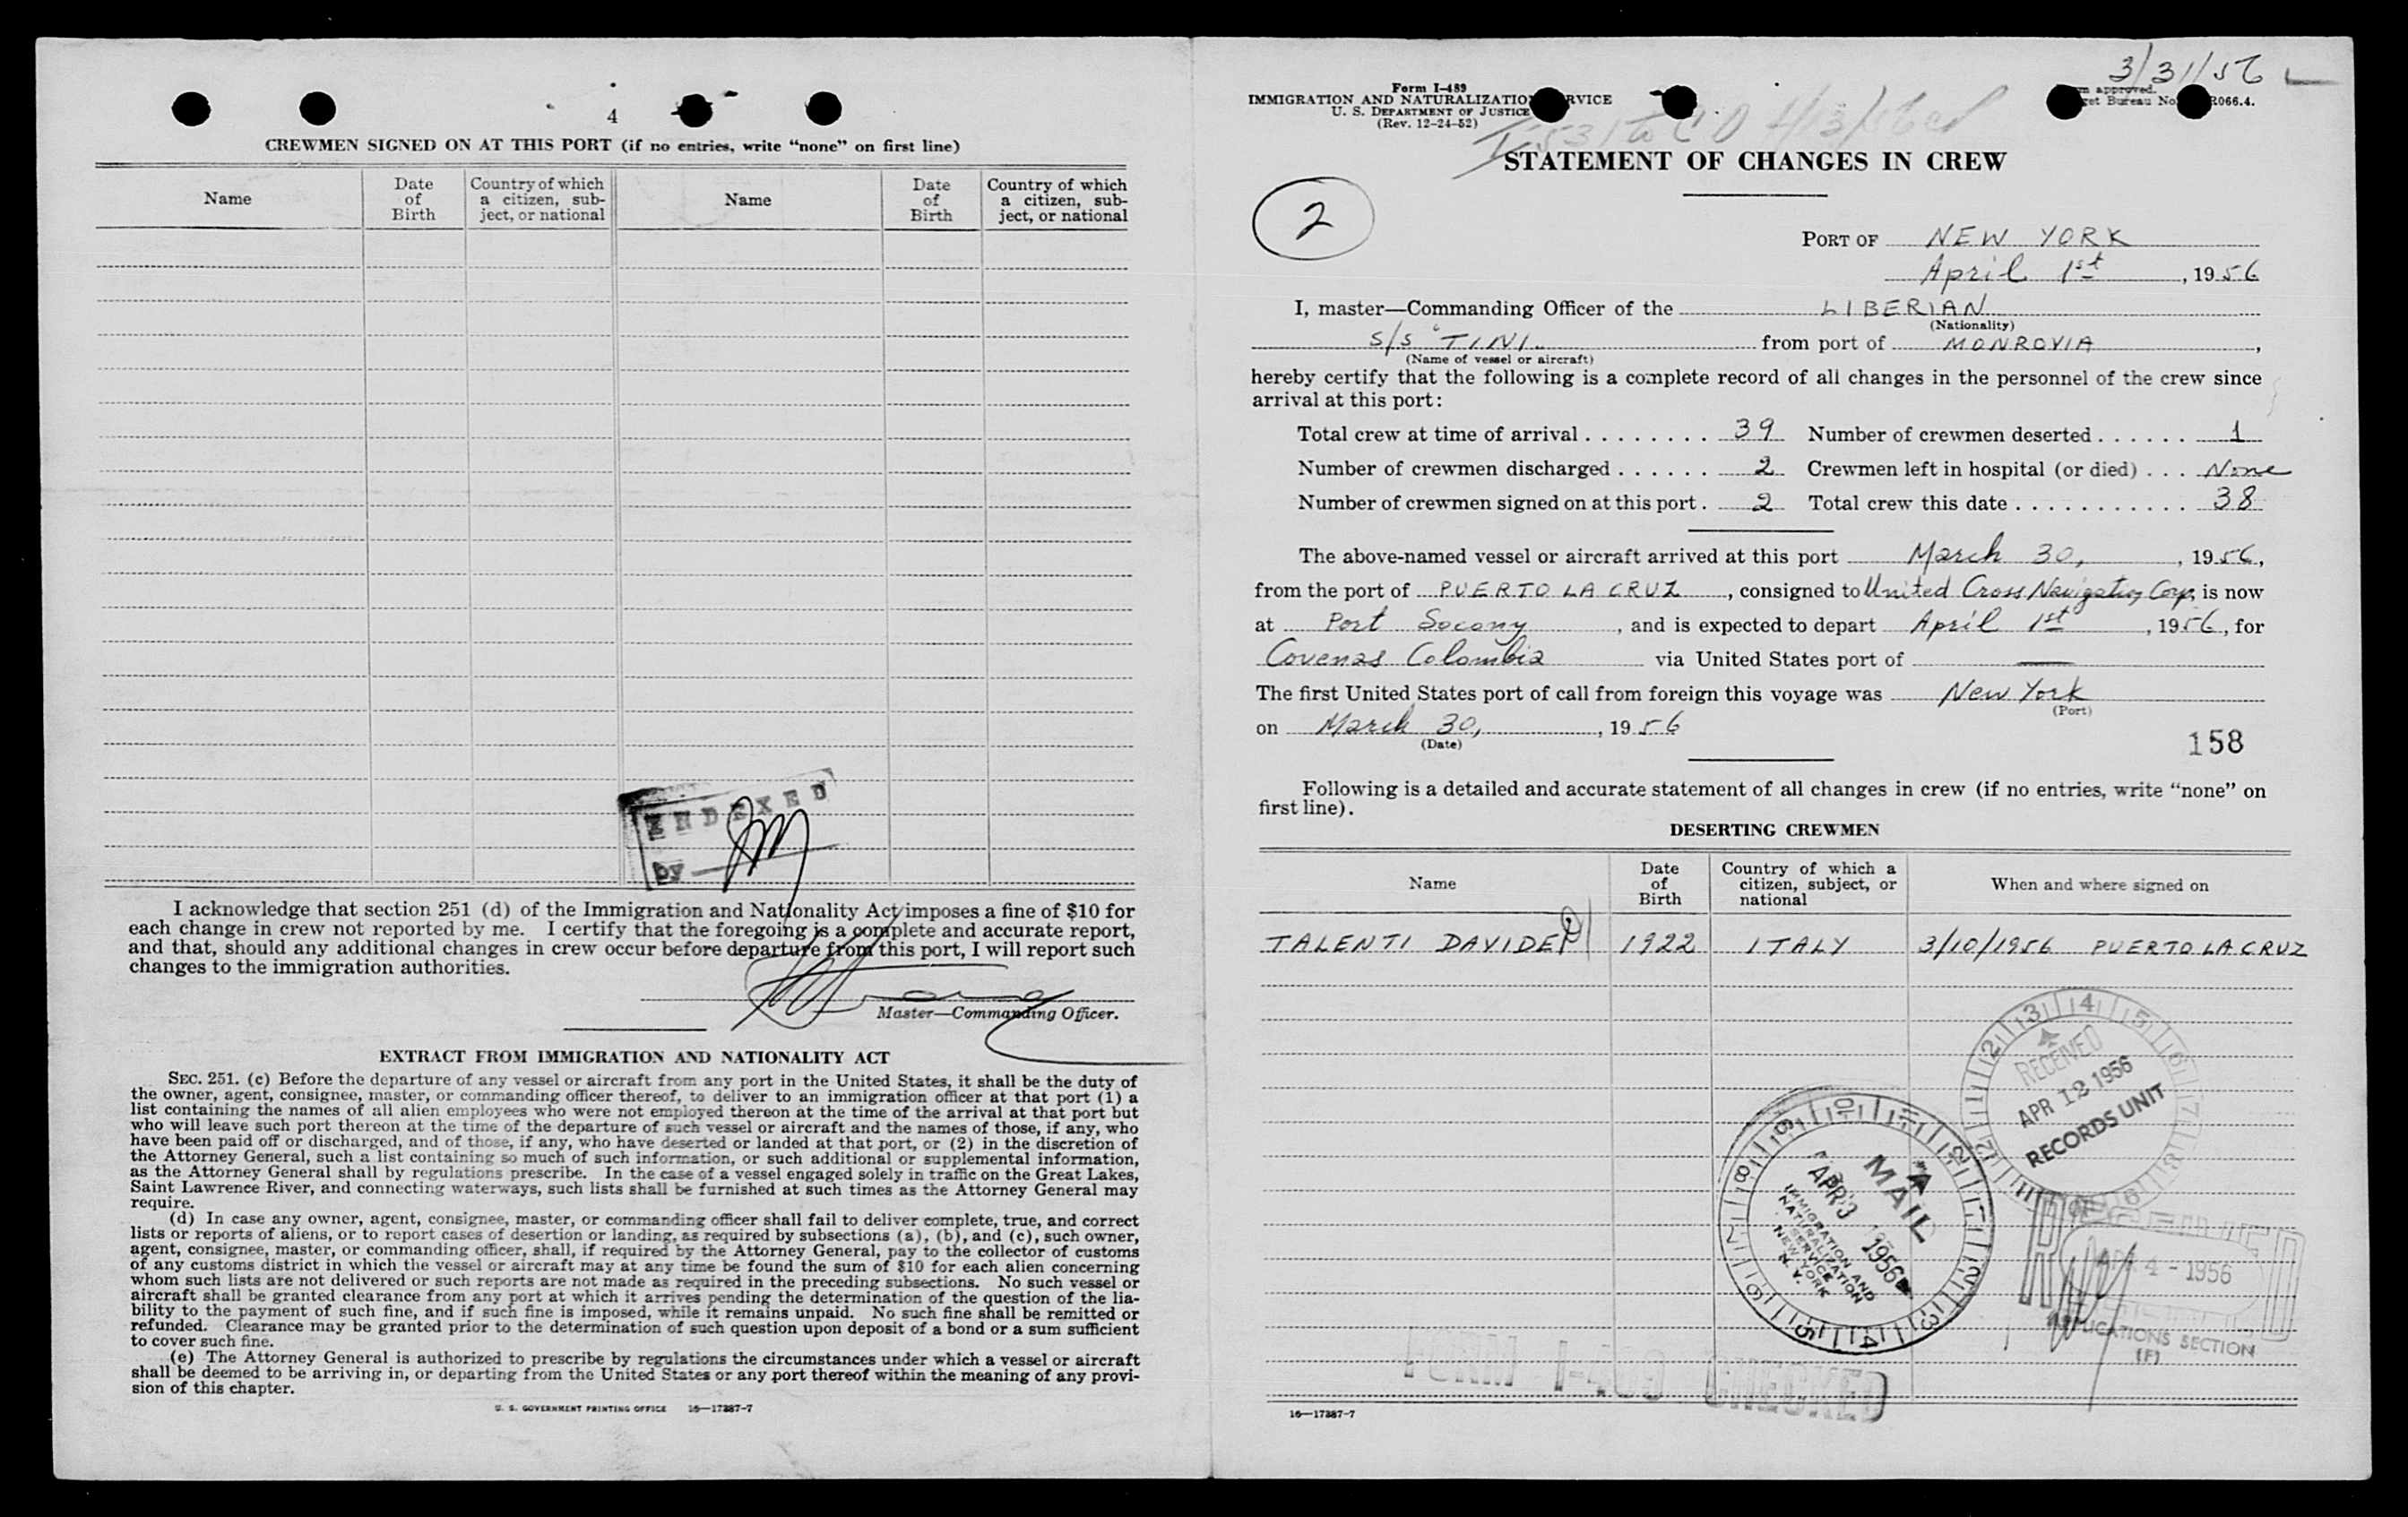 4
CREWMEN SIGNED ON AT THIS PORT (if no entries, write "none" on first line)
Name
Date of Birth
Country of which a citizen, subject, or national
Name
Date of Birth
Country of which a citizen, subject, or national
INDEXED
by
I acknowledge that section 251 (d) of the Immigration and Nationality Act imposes a fine of $10 for
each change in crew not reported by me. I certify that the foregoing is a complete and accurate report,
and that, should any additional changes in crew occur before departure from this port, I will report such
changes to the immigration authorities.
Master—Commanding Officer.
EXTRACT FROM IMMIGRATION AND NATIONALITY ACT
SEC. 251. (c) Before the departure of any vessel or aircraft from any port in the United States, it shall be the duty of
the owner, agent, consignee, master, or commanding officer thereof, to deliver to an immigration officer at that port (1) a
list containing the names of all alien employees who were not employed thereon at the time of the arrival at that port but
who will leave such port thereon at the time of the departure of such vessel or aircraft and the names of those, if any, who
have been paid off or discharged, and of those, if any, who have deserted or landed at that port, or (2) in the discretion of
the Attorney General, such a list containing so much of such information, or such additional or supplemental information,
as the Attorney General shall by regulations prescribe. In the case of a vessel engaged solely in traffic on the Great Lakes,
Saint Lawrence River, and connecting waterways, such lists shall be furnished at such times as the Attorney General may
require.
(d) In case any owner, agent, consignee, master, or commanding officer shall fail to deliver complete, true, and correct
lists or reports of aliens, or to report cases of desertion or landing, as required by subsections (a), (b), and (c), such owner,
agent, consignee, master, or commanding officer, shall, if required by the Attorney General, pay to the collector of customs
of any customs district in which the vessel or aircraft may at any time be found the sum of $10 for each alien concerning
whom such lists are not delivered or such reports are not made as required in the preceding subsections. No such vessel or
aircraft shall be granted clearance from any port at which it arrives pending the determination of the question of the lia-
bility to the payment of such fine, and if such fine is imposed, while it remains unpaid. No such fine shall be remitted or
refunded. Clearance may be granted prior to the determination of such question upon deposit of a bond or a sum sufficient
to cover such fine.
(e) The Attorney General is authorized to prescribe by regulations the circumstances under which a vessel or aircraft
shall be deemed to be arriving in, or departing from the United States or any port thereof within the meaning of any provi-
sion of this chapter.
U. S. GOVERNMENT PRINTING OFFICE 16—17387-7
3/31/56
Form I-489
IMMIGRATION AND NATURALIZATION SERVICE
U. S. DEPARTMENT OF JUSTICE
(Rev. 12-24-52)
approved.
Bureau No. R066.4.
STATEMENT OF CHANGES IN CREW
2
PORT OF NEW YORK
April 1st, 1956
I, master—Commanding Officer of the LIBERIAN
(Nationality)
S/S "TINI" from port of MONROVIA,
(Name of vessel or aircraft)
hereby certify that the following is a complete record of all changes in the personnel of the crew since
arrival at this port:
Total crew at time of arrival . . . . . . . . 39 Number of crewmen deserted . . . . . . 1
Number of crewmen discharged . . . . . . 2 Crewmen left in hospital (or died) . . . None
Number of crewmen signed on at this port . 2 Total crew this date . . . . . . . . . . . 38
The above-named vessel or aircraft arrived at this port March 30, , 1956,
from the port of PUERTO LA CRUZ, consigned to United Cross Navigation Corp, is now
at Port Socony, and is expected to depart April 1st, 1956, for
Covenas Colombia via United States port of —
The first United States port of call from foreign this voyage was New York
(Port)
on March 30, , 1956
(Date)
158
Following is a detailed and accurate statement of all changes in crew (if no entries, write "none" on
first line).
DESERTING CREWMEN
Name
Date of Birth
Country of which a citizen, subject, or national
When and where signed on
TALENTI DAVIDE 1922 ITALY 3/10/1956 PUERTO LA CRUZ
RECEIVED
APR 12 1956
RECORDS UNIT
MAIL
APR 3 1956
IMMIGRATION AND
NATURALIZATION
SERVICE
NEW YORK
N. Y.
RECEIVED
4 - 1956
APPLICATIONS SECTION
(F)
FORM I-489 CHECKED
16—17387-7